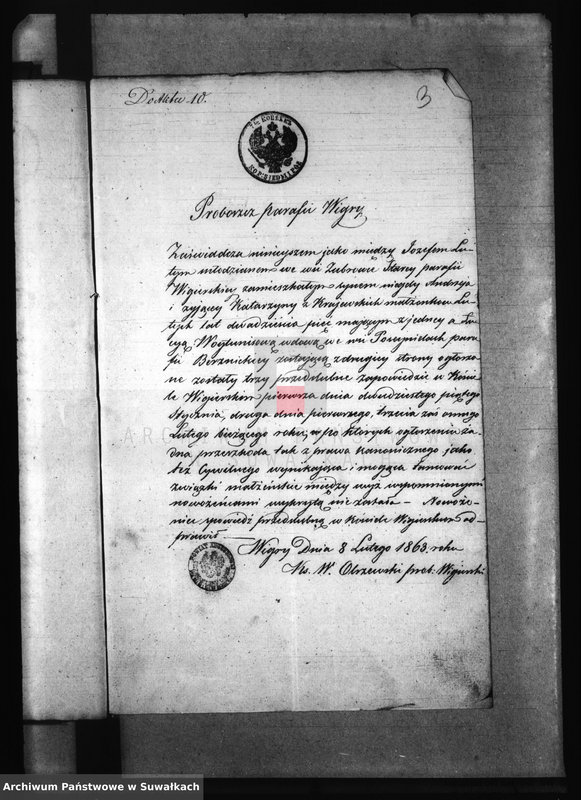 Do Aktu 10.
3
7½ KOPIEJEK
KOP. SIEDM I PÓŁ
Proboszcz parafii Wigry
Zaświadcza niniejszem jako między Jozefem Lu-
tym młodzianem we wsi Zubrowie Starey parafii
Wigierskiey zamieszkałym synem niegdy Andrzeja
i zyjący Katarzyny z Krajewskich małżonków Lu-
tych lat dwadzieścia pięć mającym z jedney a Łu-
cyą Woytuniową wdową we wsi Posejnelach para-
fii Berznickiey zostającą z drugiey strony ogłoszo-
ne zostały trzy przedślubne zapowiedzie w Kościo-
le Wigierskim pierwsza dnia dwudziestego piątego
Stycznia, druga dnia pierwszego, trzecia zaś osmego
Lutego bieżącego roku, w po których ogłoszeniu ża-
dna przeszkoda tak z prawa Kanonicznego jako
też Cywilnego wynikająca i mogąca tamować
związki małżeńskie między wyż wspomnionymi
nowożeńcami wykryta nie została – Nowoże-
niec spowiedź przedślubną w Kościele Wigierskim od-
prawił
Wigry Dnia 8 Lutego 1863. roku
Xs. W. Olszewski prob: Wigierski
Archiwum Państwowe w Suwałkach